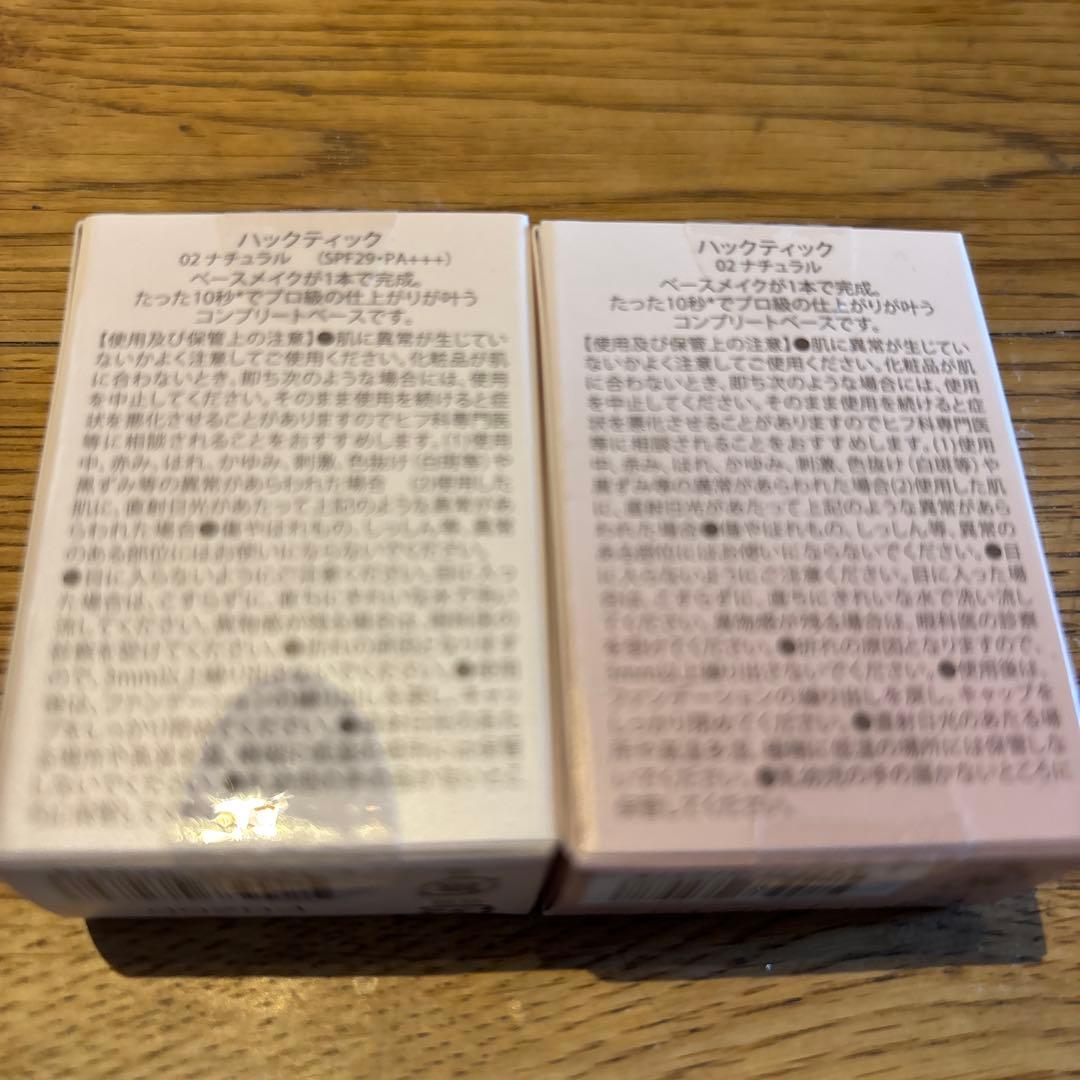 ハックティック
02 ナチュラル （SPF29・PA+++）
ベースメイクが1本で完成。
たった10秒*でプロ級の仕上がりが叶う
コンプリートベースです。
【使用及び保管上の注意】●肌に異常が生じてい
ないかよく注意してご使用ください。化粧品が肌
に合わないとき、即ち次のような場合には、使用
を中止してください。そのまま使用を続けると症
状を悪化させることがありますのでヒフ科専門医
等に相談されることをおすすめします。(1)使用
中、赤み、はれ、かゆみ、刺激、色抜け（白斑等）や
黒ずみ等の異常があらわれた場合 (2)使用した
肌に、直射日光があたって上記のような異常があ
らわれた場合●傷やはれもの、しっしん等、異常
のある部位にはお使いにならないでください。
●目に入らないようにご注意ください。目に入っ
た場合は、こすらずに、直ちにきれいな水で洗い
流してください。異物感が残る場合は、眼科医の
診察を受けてください。●折れの原因となります
ので、3mm以上繰り出さないでください。●使用
ハックティック
02 ナチュラル
ベースメイクが1本で完成。
たった10秒*でプロ級の仕上がりが叶う
コンプリートベースです。
【使用及び保管上の注意】●肌に異常が生じてい
ないかよく注意してご使用ください。化粧品が肌
に合わないとき、即ち次のような場合には、使用
を中止してください。そのまま使用を続けると症
状を悪化させることがありますのでヒフ科専門医
等に相談されることをおすすめします。(1)使用
中、赤み、はれ、かゆみ、刺激、色抜け（白斑等）や
黒ずみ等の異常があらわれた場合(2)使用した肌
に、直射日光があたって上記のような異常があら
われた場合●傷やはれもの、しっしん等、異常の
ある部位にはお使いにならないでください。●目
に入らないようにご注意ください。目に入った場
合は、こすらずに、直ちにきれいな水で洗い流し
てください。異物感が残る場合は、眼科医の診察
を受けてください。●折れの原因となりますので、
3mm以上繰り出さないでください。●使用後は、
ファンデーションの繰り出しを戻し、キャップを
しっかり閉めてください。●直射日光のあたる場
所や高温多湿、極端に低温の場所には保管しな
いでください。●乳幼児の手の届かないところに
保管してください。